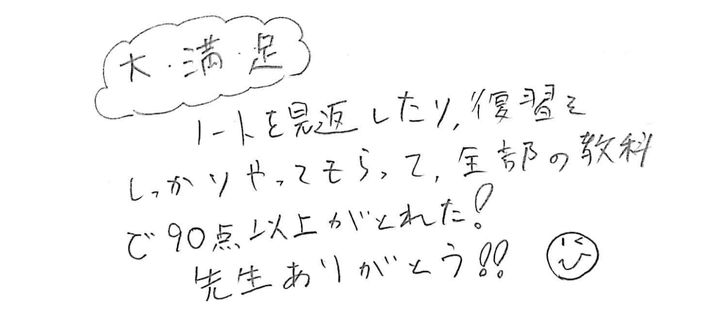 大・満・足
ノートを見返したり,復習を
しっかりやってもらって,全部の教科
で90点以上がとれた!
先生ありがとう!!